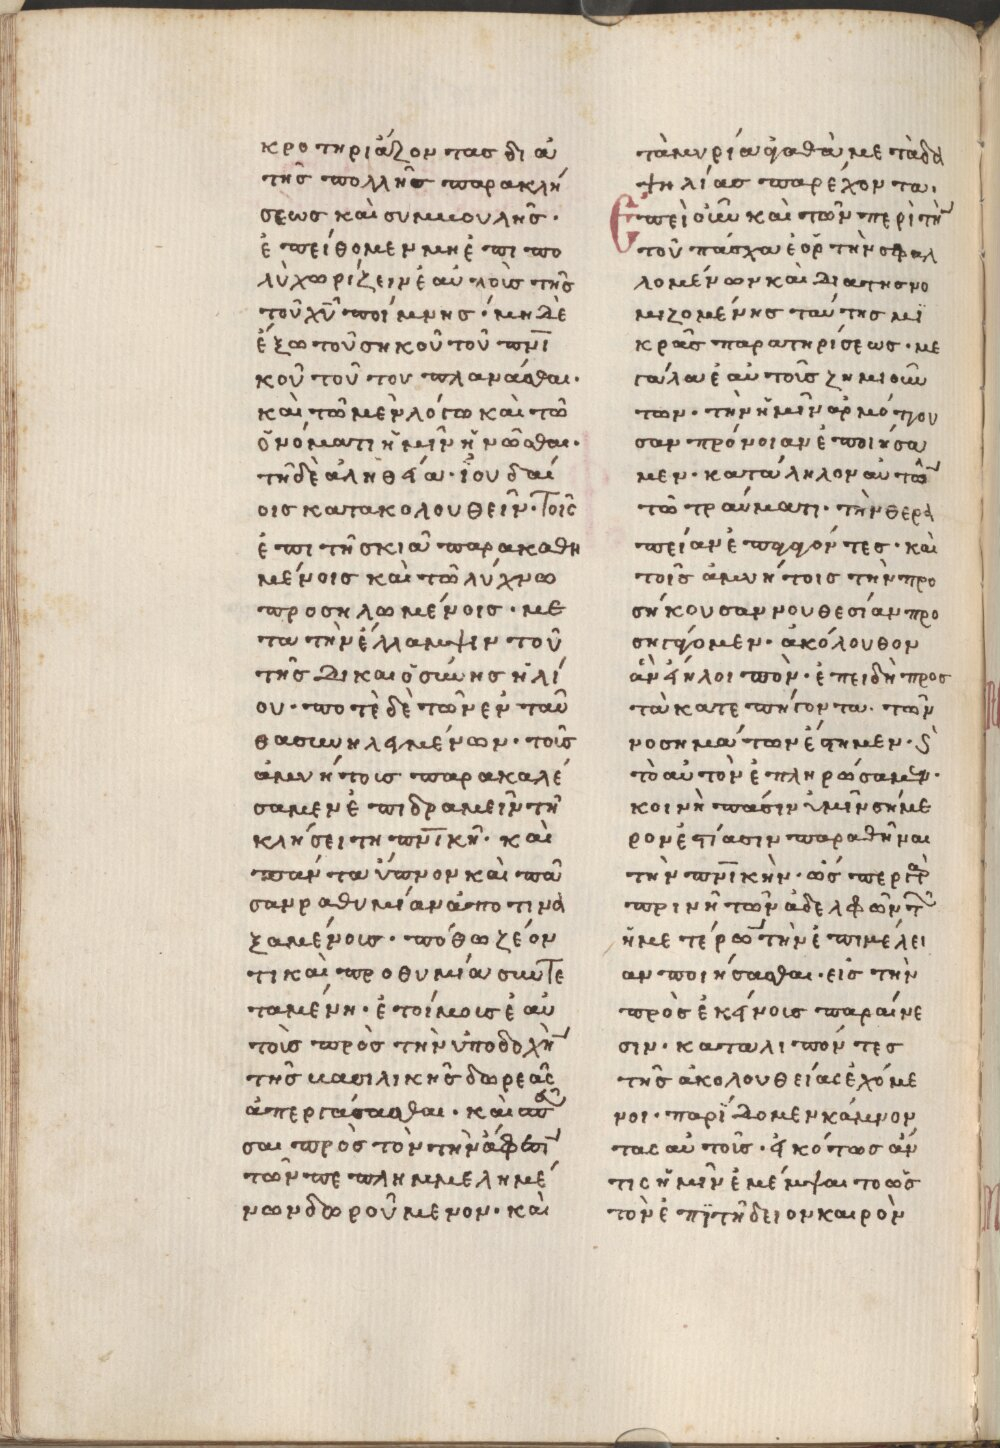 κροτηριάζοντας διὰ
τῆς πολλῆς παρακλή
σεως καὶ συμβουλῆς·
ἐπείθομεν μὴ ἐπιπο
λὺ χωρίζειν ἑαυτοὺς τῆς
τοῦ χῦ ποίμνης· μηδὲ
ἔξω τοῦ σηκοῦ τοῦ πνῑ
κοῦ τούτου πλανᾶσθαι·
καὶ τῶ μὲν λόγω καὶ τῶ
ὀνόματι ἡμῖν ἡνῶσθαι·
τῆ δὲ ἀληθεία· ἰουδαί
οις κατακολουθεῖν· Τοῖς
ἐπὶ τῆ σκιᾶ παρακαθη
μένοις καὶ τῶ λύχνω
προσηλωμένοις· με
τὰ τὴν ἔλλαμψιν τοῦ
τῆς δικαιοσύνης ἡλί
ου· ποτὲ δὲ τῶν ἐνταῦ
θα συνειλεγμένων· τοῖς
ἀμυήτοις παρακαλέ
σαμεν ἐπιδραμεῖν τῆ
κλήσει τῆ πνῑκῆ· καὶ
πάντα ὕπνον καὶ πᾶ
σαν ραθυμίαν ἀποτινα
ξαμένοις· πόθω ζέον
τι καὶ προθυμία συντε
ταμένη· ἑτοίμοις ἑαυ
τοὺς πρὸς τὴν ὑποδοχὴν
τῆς βασιλικῆς δωρεᾶς
ἀπεργάσασθαι· καὶ
σαι πρὸς τὸν τὴν ἄφεσιν
τῶν πεπλημμελημέ
νων δωρούμενον· καὶ
τὰ μυρία ἀγαθὰ μετὰ δα
ψιλίας παρέχοντα·
Ἐπεὶ οὖν καὶ τῶν περὶ τὴν
τοῦ πάσχα ἑορτὴν σφαλ
λομένων καὶ διὰ τῆς νο
μιζομένης ταύτης μι
κρᾶς παρατηρίσεως· με
γάλα ἑαυτοὺς ζημιούν
των· τὴν ἡμῖν ἁρμόττου
σαν πρόνοιαν ἐποιήσα
μεν· κατάληλον αὐτῶν
τῶ τραύματι· τὴν θερα
πείαν ἐπάγοντες· καὶ
τοῖς ἀμυήτοις τὴν προ
σήκουσαν νουθεσίαν προ
σηγάγομεν· ἀκόλουθον
ἂν εἴη λοιπὸν· ἐπειδὴ πρὸς
τὰ κατεπήγοντα· τῶν
νοσημάτων ἔστημεν·
τὸ αὐτὸν ἐπληρώσαμεν·
κοινὴ πᾶσιν ὑμῖν σήμε
ρον ἑστίασιν παραθῆναι
τὴν πνῑκὴν· ὥσπερ γὰρ
πρινὴ τῶν ἀδελφῶν τῶν
ἡμετέρων τὴν ἐπιμέλει
αν ποιήσασθαι· εἰς τὴν
πρὸς ἐκείνοις παραίνε
σιν· καταλιπόντες
τῆς ἀκολουθείας ἐχόμε
νοι· παρίδομεν κάμνον
τας αὐτοῖς· εἰκότως ἄν
τις ἡμῖν ἐμέμψατο ὡς
τὸν ἐπιτήδειον καιρὸν